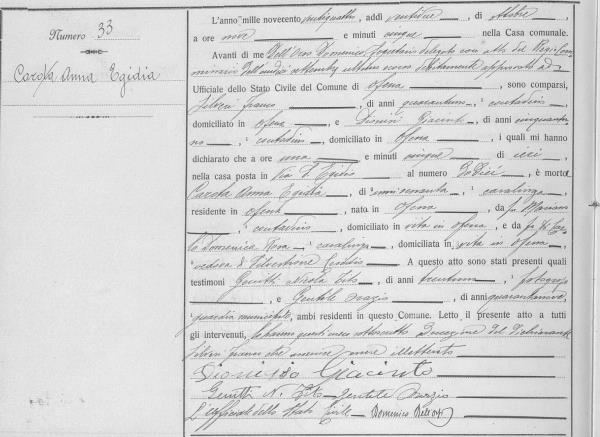 Numero 33
Carota Anna Egidia
L'anno mille novecento ventiquattro, addì ventitre, di ottobre,
a ore nove e minuti cinque, nella Casa comunale.
Avanti di me Dell'Orso Domenico Segretario delegato con atto del Regio Com
missario debitamente approvato ed
Ufficiale dello Stato Civile del Comune di Ofena, sono comparsi,
Silveri Franco, di anni quarantuno, contadino,
domiciliato in Ofena e Dionisi Giacinto, di anni cinquantu
no, contadino, domiciliato in Ofena, i quali mi hanno
dichiarato che a ore una e minuti cinque di ieri,
nella casa posta in Via S. Egidio al numero dodici, è morta
Carota Anna Egidia, di anni novanta, casalinga,
residente in Ofena, nato in Ofena, da fu Mariano
, contadino, domiciliato in vita in Ofena, e da fu
Domenica Rosa, casalinga, domiciliata in vita in Ofena,
vedova di Silvestrone. A questo atto sono stati presenti quali
testimoni Genitti Nicola Tito, di anni trentuno, fotografo
, e Gentile Orazio, di anni quarantanove,
guardia municipale, ambi residenti in questo Comune. Letto il presente atto a tutti
gli intervenuti, lo hanno questi meco sottoscritto ad eccezione del dichiarante
Silveri Franco che asserisce essere illetterato
Dionisio Giacinto
Genitti N. Tito Gentile Orazio
L'ufficiale dello Stato Civile Domenico Dell'Orso